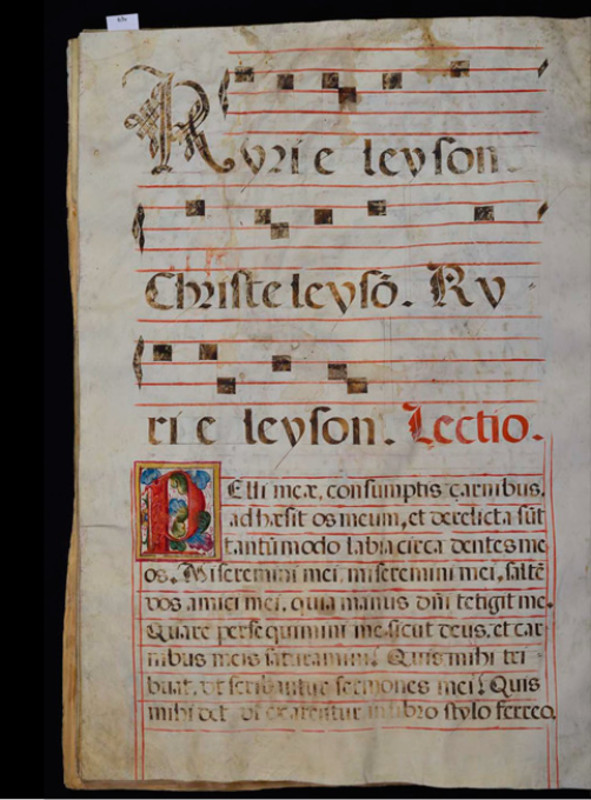 Kyri e leyson.
Christe leysõ. Ky
ri e leyson. Lectio.
PElli meæ, consumptis carnibus,
adhæsit os meum, et derelicta sũt
tantũmodo labia circa dentes me
os. Miseremini mei, miseremini mei, saltẽ
vos amici mei, quia manus dñi tetigit me.
Quare persequimini me sicut deus, et car
nibus meis saturamini? Quis mihi tri
buat, vt scribantur sermones mei? Quis
mihi det vt exarentur in libro stylo ferreo,